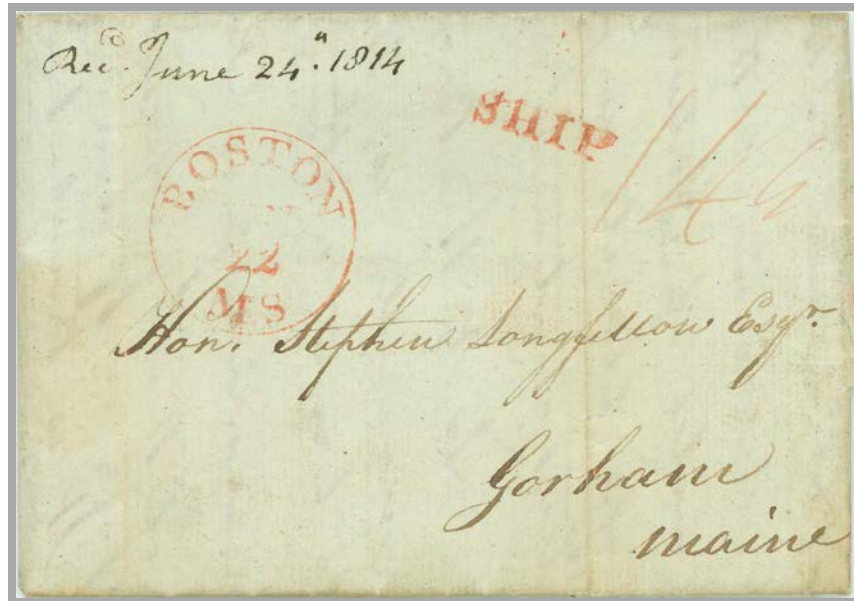 Recd. June 24. 1814
SHIP
14½
BOSTON
22
MS
Hon. Stephen Longfellow Esqr.
Gorham
maine